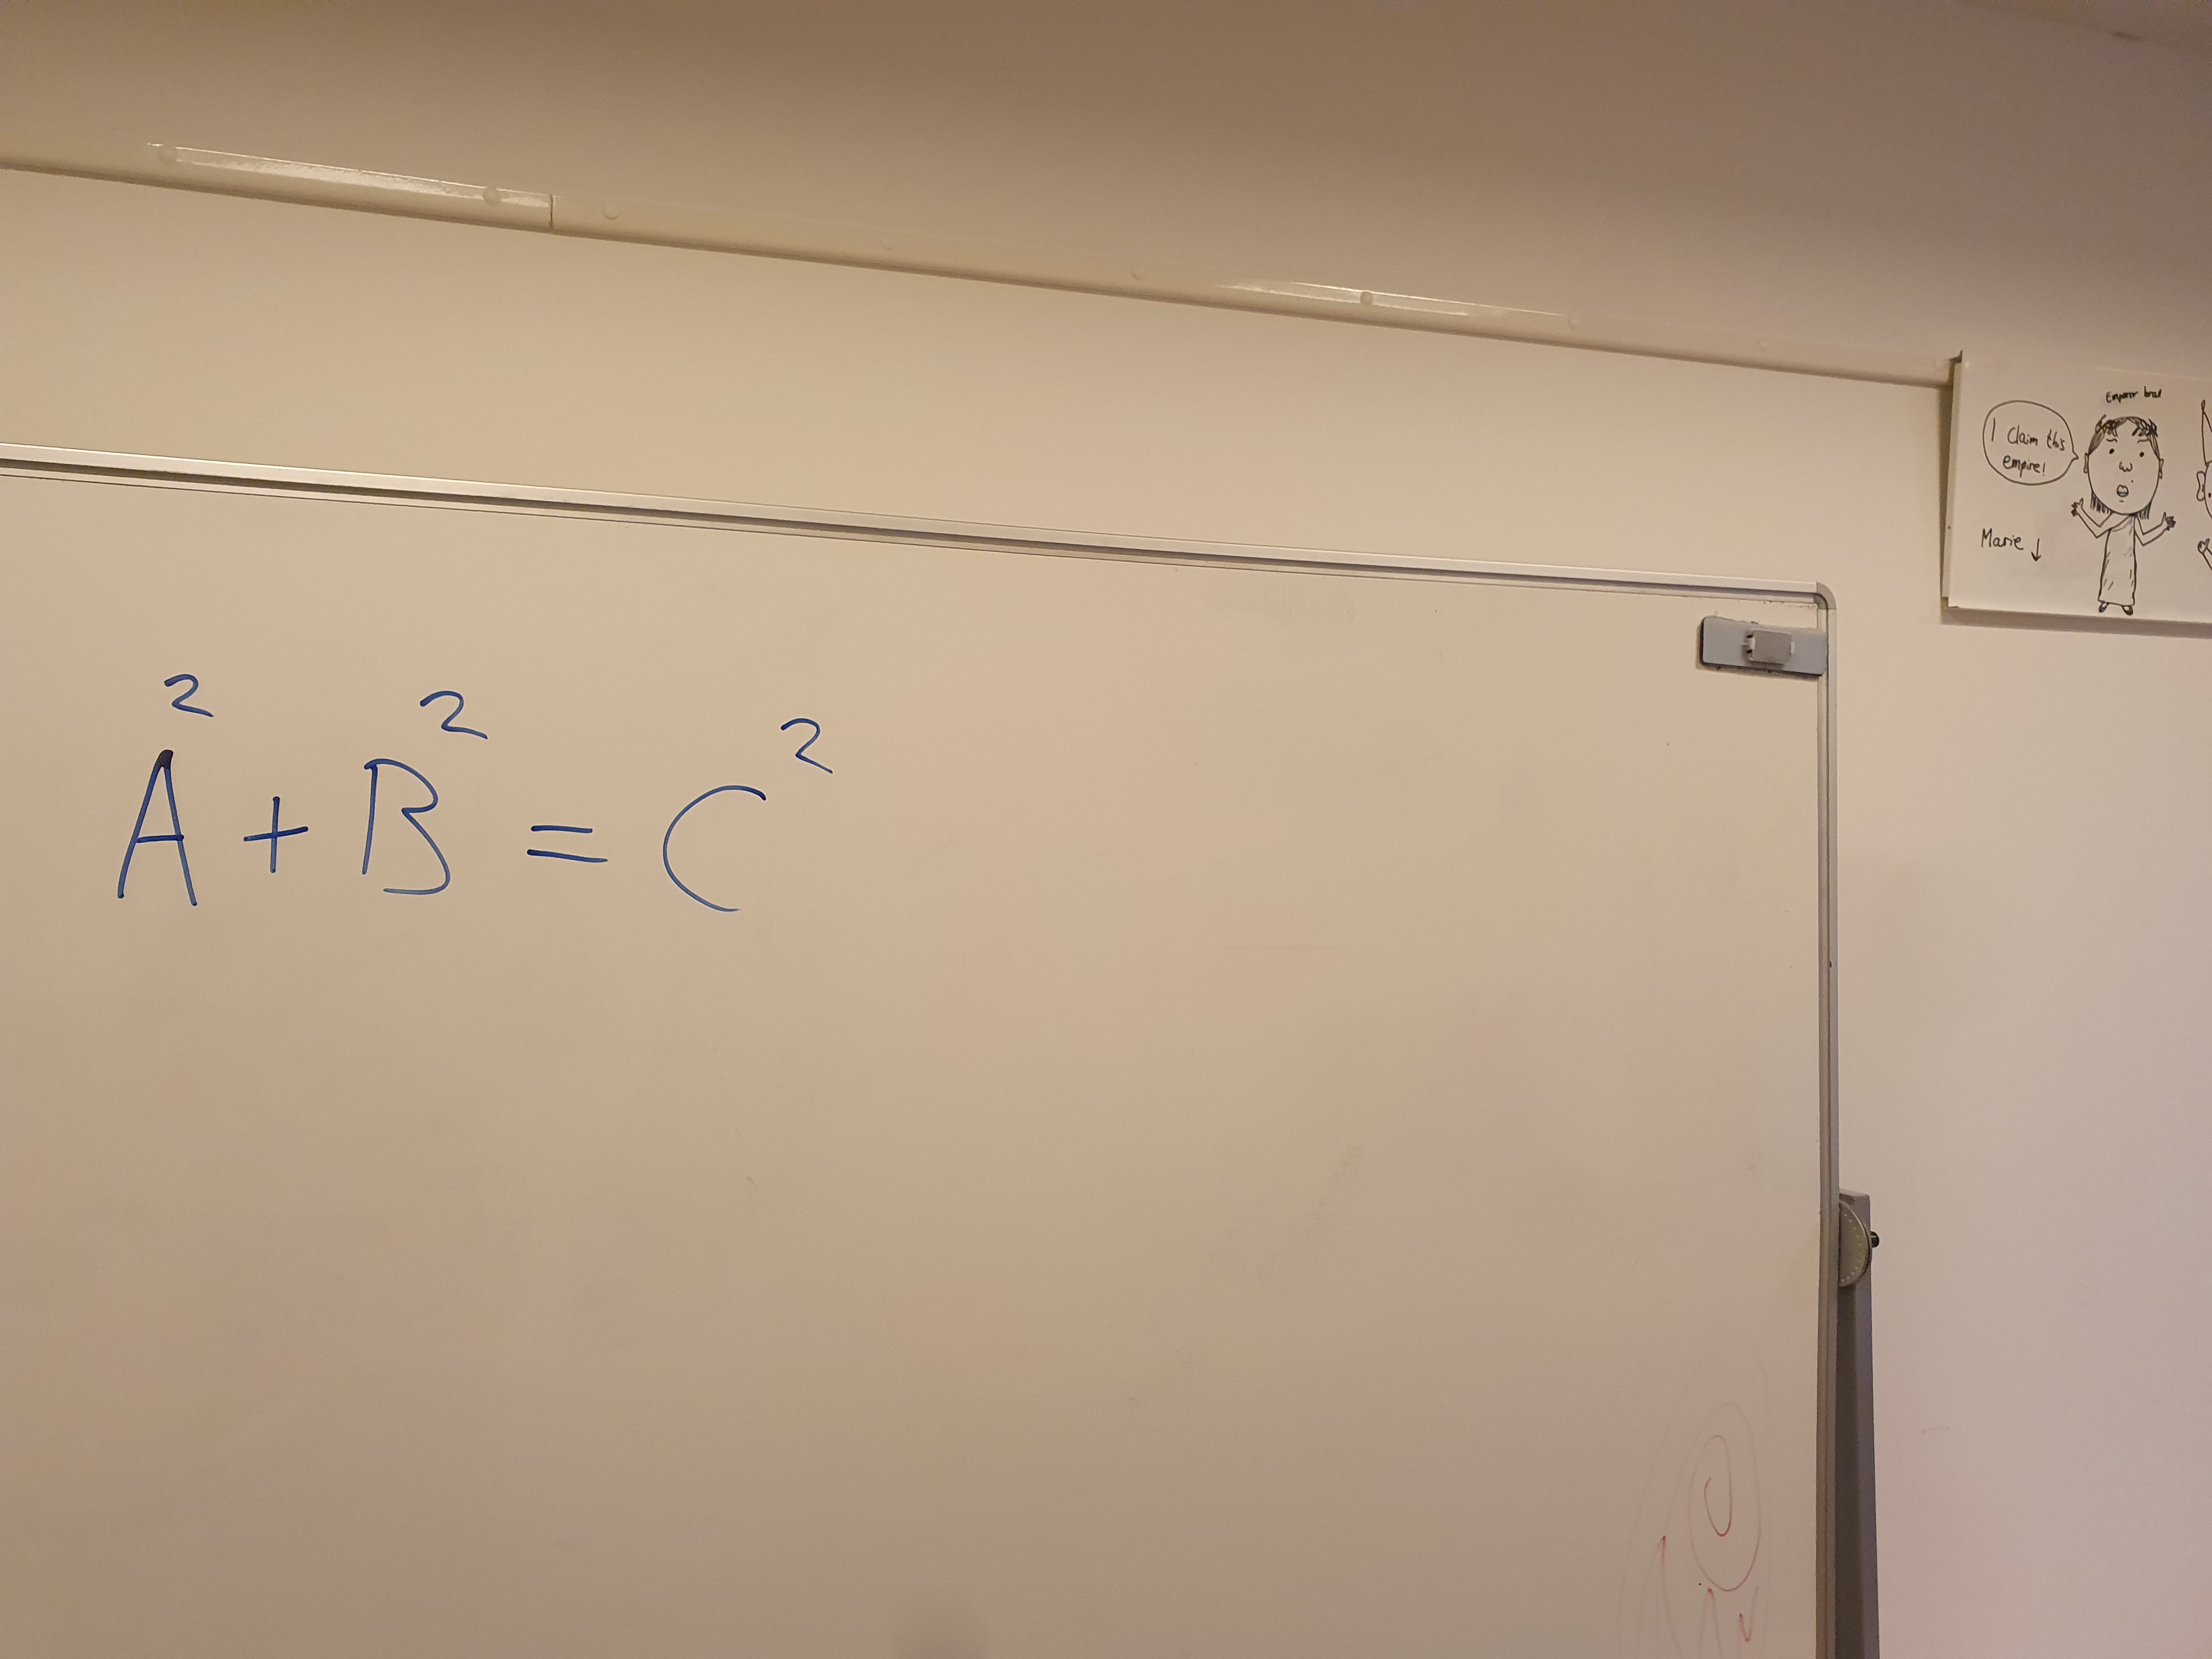 A² + B² = C²
Emperor
I claim this
empire!
Marie ↓